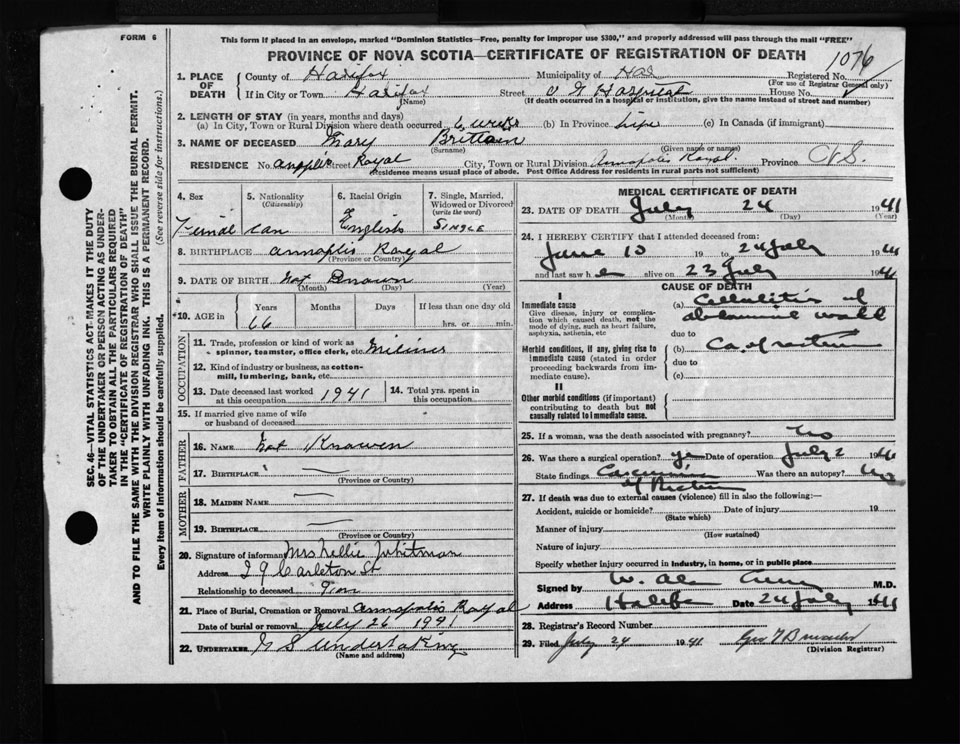 FORM 6
This form if placed in an envelope, marked "Dominion Statistics—Free, penalty for improper use $300," and properly addressed will pass through the mail "FREE"
PROVINCE OF NOVA SCOTIA—CERTIFICATE OF REGISTRATION OF DEATH
1076
1. PLACE OF DEATH
County of Halifax
Municipality of Hal
Registered No.
(For use of Registrar General only)
If in City or Town Halifax
(Name)
Street V G Hospital
House No.
(If death occurred in a hospital or institution, give the name instead of street and number)
2. LENGTH OF STAY (in years, months and days)
(a) In City, Town or Rural Division where death occurred 6 weeks (b) In Province Life (c) In Canada (if immigrant)
3. NAME OF DECEASED Mary Brittain
(Surname) (Given name or names)
RESIDENCE No. Street Royal City, Town or Rural Division Annapolis Royal. Province
Residence means usual place of abode. Post Office Address for residents in rural parts not sufficient)
SEC. 46—VITAL STATISTICS ACT MAKES IT THE DUTY
OF THE UNDERTAKER OR PERSON ACTING AS UNDER-
TAKER TO OBTAIN ALL THE PARTICULARS REQUIRED
IN THE "CERTIFICATE OF REGISTRATION OF DEATH"
AND TO FILE THE SAME WITH THE DIVISION REGISTRAR WHO SHALL ISSUE THE BURIAL PERMIT.
WRITE PLAINLY WITH UNFADING INK. THIS IS A PERMANENT RECORD.
Every item of information should be carefully supplied. (See reverse side for instructions.)
4. Sex
5. Nationality
(Citizenship)
6. Racial Origin
7. Single, Married, Widowed or Divorced
(write the word)
Can English SINGLE
8. BIRTHPLACE Annapolis Royal
(Province or Country)
9. DATE OF BIRTH Not Known
(Month) (Day) (Year)
10. AGE in
Years Months Days If less than one day old
66 hrs. or min.
OCCUPATION
11. Trade, profession or kind of work as
spinner, teamster, office clerk, etc. Miliner
12. Kind of industry or business, as cotton-
mill, lumbering, bank, etc.
13. Date deceased last worked
at this occupation 1941
14. Total yrs. spent in
this occupation
15. If married give name of wife
or husband of deceased
FATHER
16. NAME Not Known
17. BIRTHPLACE —
(Province or Country)
MOTHER
18. MAIDEN NAME —
19. BIRTHPLACE —
(Province or Country)
20. Signature of informant Mrs Nellie Whitman
Address 29 Carleton St
Relationship to deceased
21. Place of Burial, Cremation or Removal Annapolis Royal
Date of burial or removal July 26 1941
22. UNDERTAKER N S Undertaking
(Name and address)
MEDICAL CERTIFICATE OF DEATH
23. DATE OF DEATH July 24 1941
(Month) (Day) (Year)
24. I HEREBY CERTIFY that I attended deceased from:
June 10 19 to 24 July 1941
and last saw h e alive on 23 July 1941
CAUSE OF DEATH
I
Immediate cause
Give disease, injury or complica-
tion which caused death, not the
mode of dying, such as heart failure,
asphyxia, asthenia, etc
(a) Cellulitis of
abdominal wall
due to
Morbid conditions, if any, giving rise to
immediate cause (stated in order
proceeding backwards from im-
mediate cause).
(b) Ca. of rectum
due to
(c)
II
Other morbid conditions (if important)
contributing to death but not
causally related to immediate cause.
25. If a woman, was the death associated with pregnancy? No
26. Was there a surgical operation? yes Date of operation July 2 1941
State findings Carcinoma Was there an autopsy? No
of Rectum
27. If death was due to external causes (violence) fill in also the following:—
Accident, suicide or homicide? Date of injury 19
(State which)
Manner of injury
(How sustained)
Nature of injury
Specify whether injury occurred in industry, in home, or in public place
Signed by W. M.D.
Address Halifax Date 24 July 1941
28. Registrar's Record Number
29. Filed July 24 1941
(Division Registrar)